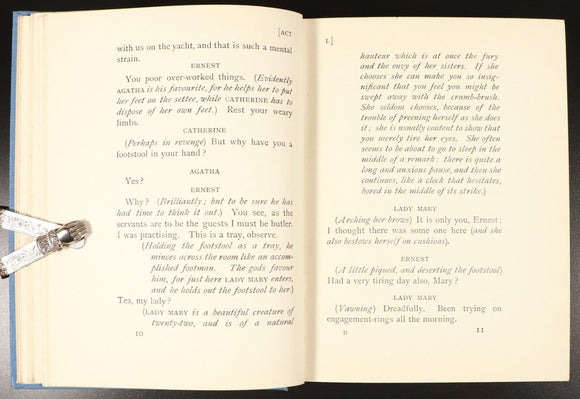 [ACT
with us on the yacht, and that is such a mental
strain.
ERNEST
You poor over-worked things. (Evidently
AGATHA is his favourite, for he helps her to put
her feet on the settee, while CATHERINE has to
dispose of her own feet.) Rest your weary
limbs.
CATHERINE
(Perhaps in revenge) But why have you a
footstool in your hand ?
AGATHA
Yes ?
ERNEST
Why ? (Brilliantly ; but to be sure he has
had time to think it out.) You see, as the
servants are to be the guests I must be butler.
I was practising. This is a tray, observe.
(Holding the footstool as a tray, he
minces across the room like an accom-
plished footman. The gods favour
him, for just here LADY MARY enters,
and he holds out the footstool to her.)
Tea, my lady ?
(LADY MARY is a beautiful creature of
twenty-two, and is of a natural
10
I.]
hauteur which is at once the fury
and the envy of her sisters. If she
chooses she can make you so insig-
nificant that you feel you might be
swept away with the crumb-brush.
She seldom chooses, because of the
trouble of preening herself as she does
it ; she is usually content to show that
you merely tire her eyes. She often
seems to be about to go to sleep in the
middle of a remark : there is quite a
long and anxious pause, and then she
continues, like a clock that hesitates,
bored in the middle of its strike.)
LADY MARY
(Arching her brows) It is only you, Ernest ;
I thought there was some one here (and she
also bestows herself on cushions).
ERNEST
(A little piqued, and deserting the footstool)
Had a very tiring day also, Mary ?
LADY MARY
(Yawning) Dreadfully. Been trying on
engagement-rings all the morning.
D
11